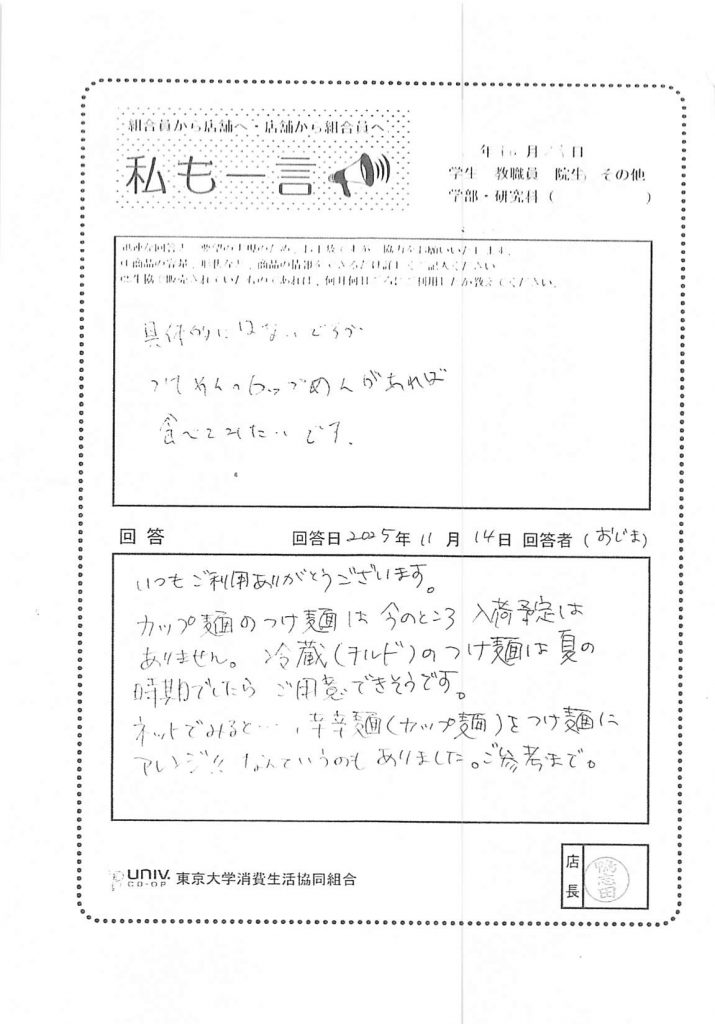 組合員から店舗へ・店舗から組合員へ
私も一言
年 月 日
学生 教職員 院生 その他
学部・研究科（ ）
迅速な回答と、要望の実現のため、お手数ですが、協力をお願いいたします。
具体的にはないですが
つけめんのカップめんがあれば
食べてみたいです。
回答 回答日2025年11月14日 回答者（おじま）
いつもご利用ありがとうございます。
カップ麺のつけ麺は今のところ入荷予定は
ありません。冷蔵(チルド)のつけ麺は夏の
時期でしたらご用意できそうです。
ネットでみると…辛辛麺(カップ麺)をつけ麺に
アレンジ!! なんていうのもありました。ご参考まで。
UNIV. CO-OP 東京大学消費生活協同組合
店長